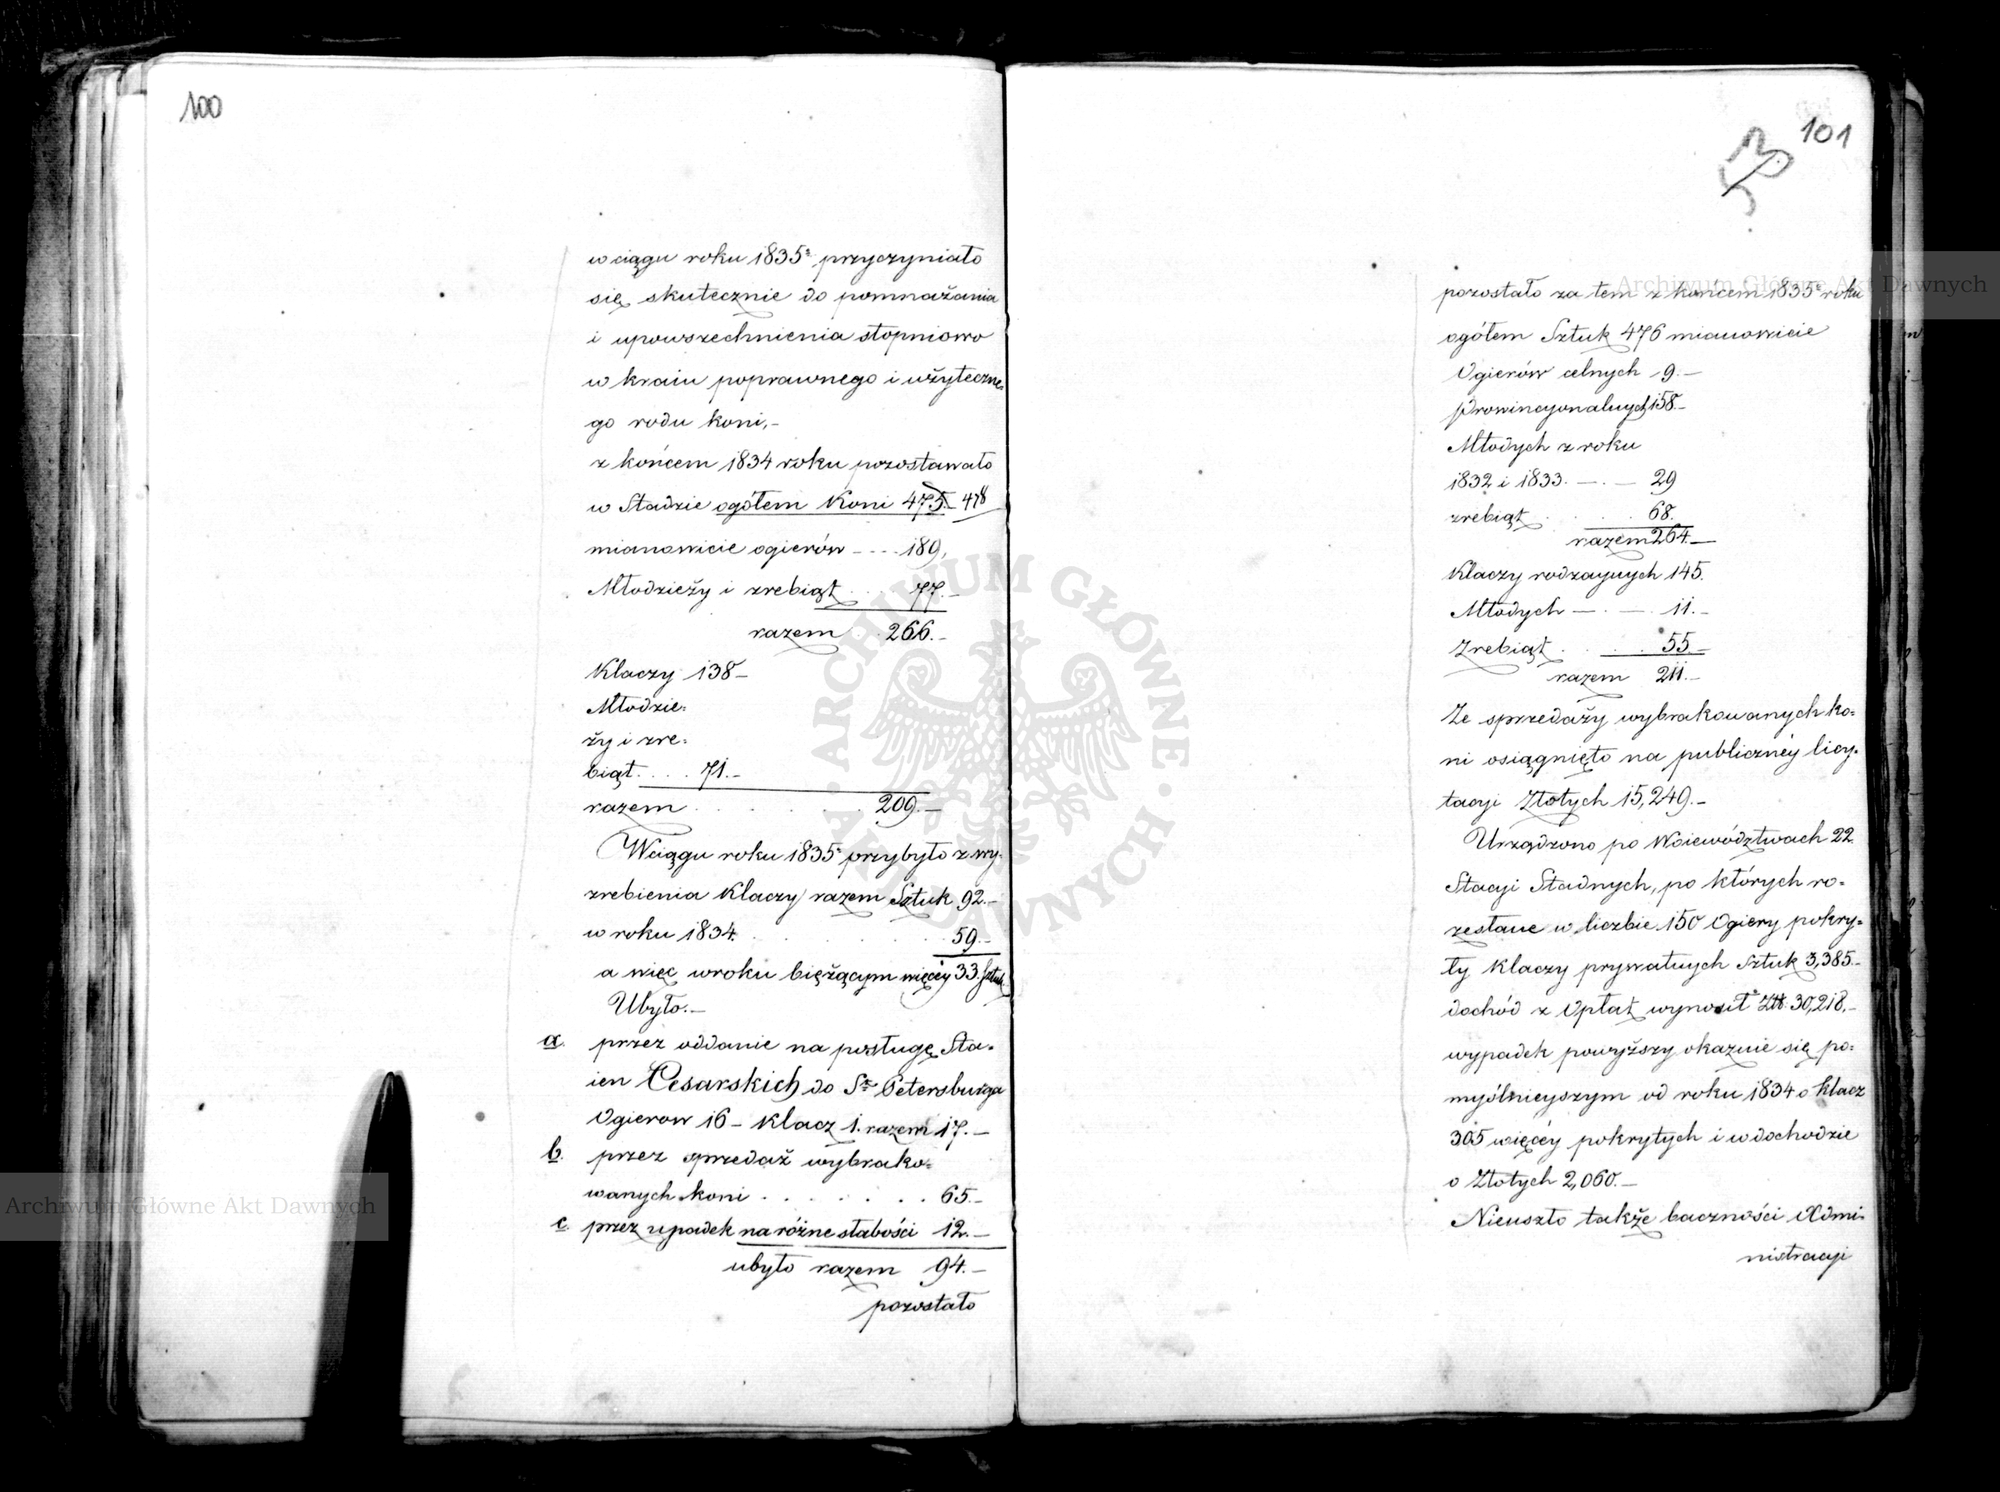 100
w ciągu roku 1835º przyczyniało
się skutecznie do pomnażania
i upowszechnienia stopniowo
w kraiu poprawnego i użyteczne=
go rodu koni,-
z końcem 1834 roku pozostawało
w Stadzie ogółem Koni 475.- 478
mianowicie ogierów - - - 189,
Młodzieży i zrebiąt . . . 77.-
razem . 266.-
Klaczy 138-
Młodzie=
ży i zre=
biąt. . . . 71.-
razem . . . . . . 209.-
Wciągu roku 1835º przybyło z wy=
zrebienia Klaczy razem Sztuk 92.-
w roku 1834. . . . . . . . 59.-
a więc wroku bieżącym więcéy 33. Sztuk
Ubyło.-
a. przez oddanie na posługę Sta=
ien Cesarskich do St Petersburga
Ogierow 16 - Klacz 1. razem 17.-
b. przez sprzedaż wybrako=
wanych koni . . . . . . . 65.-
c. przez upadek na różne słabości 12.-
ubyło razem 94.-
pozostało
101
53
pozostało za tem z końcem 1835º roku
ogółem Sztuk 476 mianowicie
Ogierów celnych 9.-
Prowincyonalnych 158.-
Młodych z roku
1832 i 1833. - . - 29
zrebiąt . . . . 68.
razem 264.-
Klaczy rodzaynych 145.
Młodych - . - . 11.-
Zrebiąt . . . . 55.-
razem 211.-
Ze sprzedaży wybrakowanych ko=
ni osiągnięto na publicznéy licy=
tacyi Złotych 15,249.-
Urządzono po Woiewództwach 22
Stacyi Stadnych, po których ro=
zesłane w liczbie 150 Ogiery pokry=
ły Klaczy prywatnych Sztuk 3,385.-
dochód z Opłat wynosił Złt. 30,218.-
wypadek powyższy okazuie się po=
myślnieyszym od roku 1834 o Klacz
305 więcéy pokrytych i w dochodzie
o Złotych 2,060.-
Nieuszło także baczności Admi=
nistracyi
Archiwum Główne Akt Dawnych
Archiwum Główne Akt Dawnych
ARCHIWUM GŁÓWNE AKT DAWNYCH